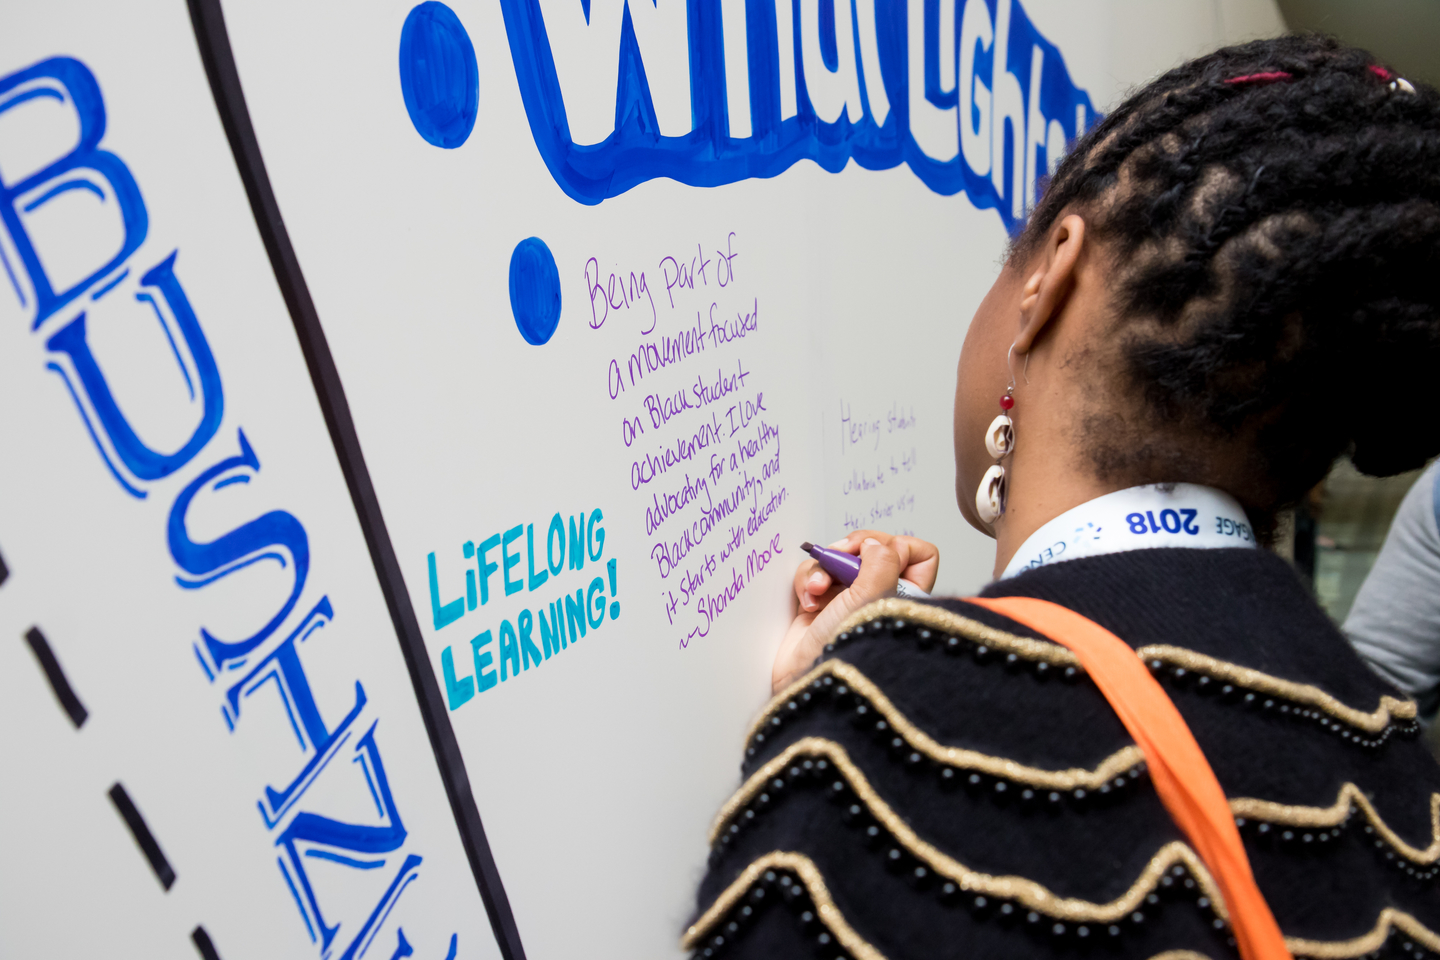 BUSIN
What Light
Being part of
a movement focused
on Black student
achievement. I love
advocating for a healthy
Black community, and
it starts with education.
~Shonda Moore
LiFELONG
LEARNING!
Hearing students
collaborate to tell
their stories using
2018